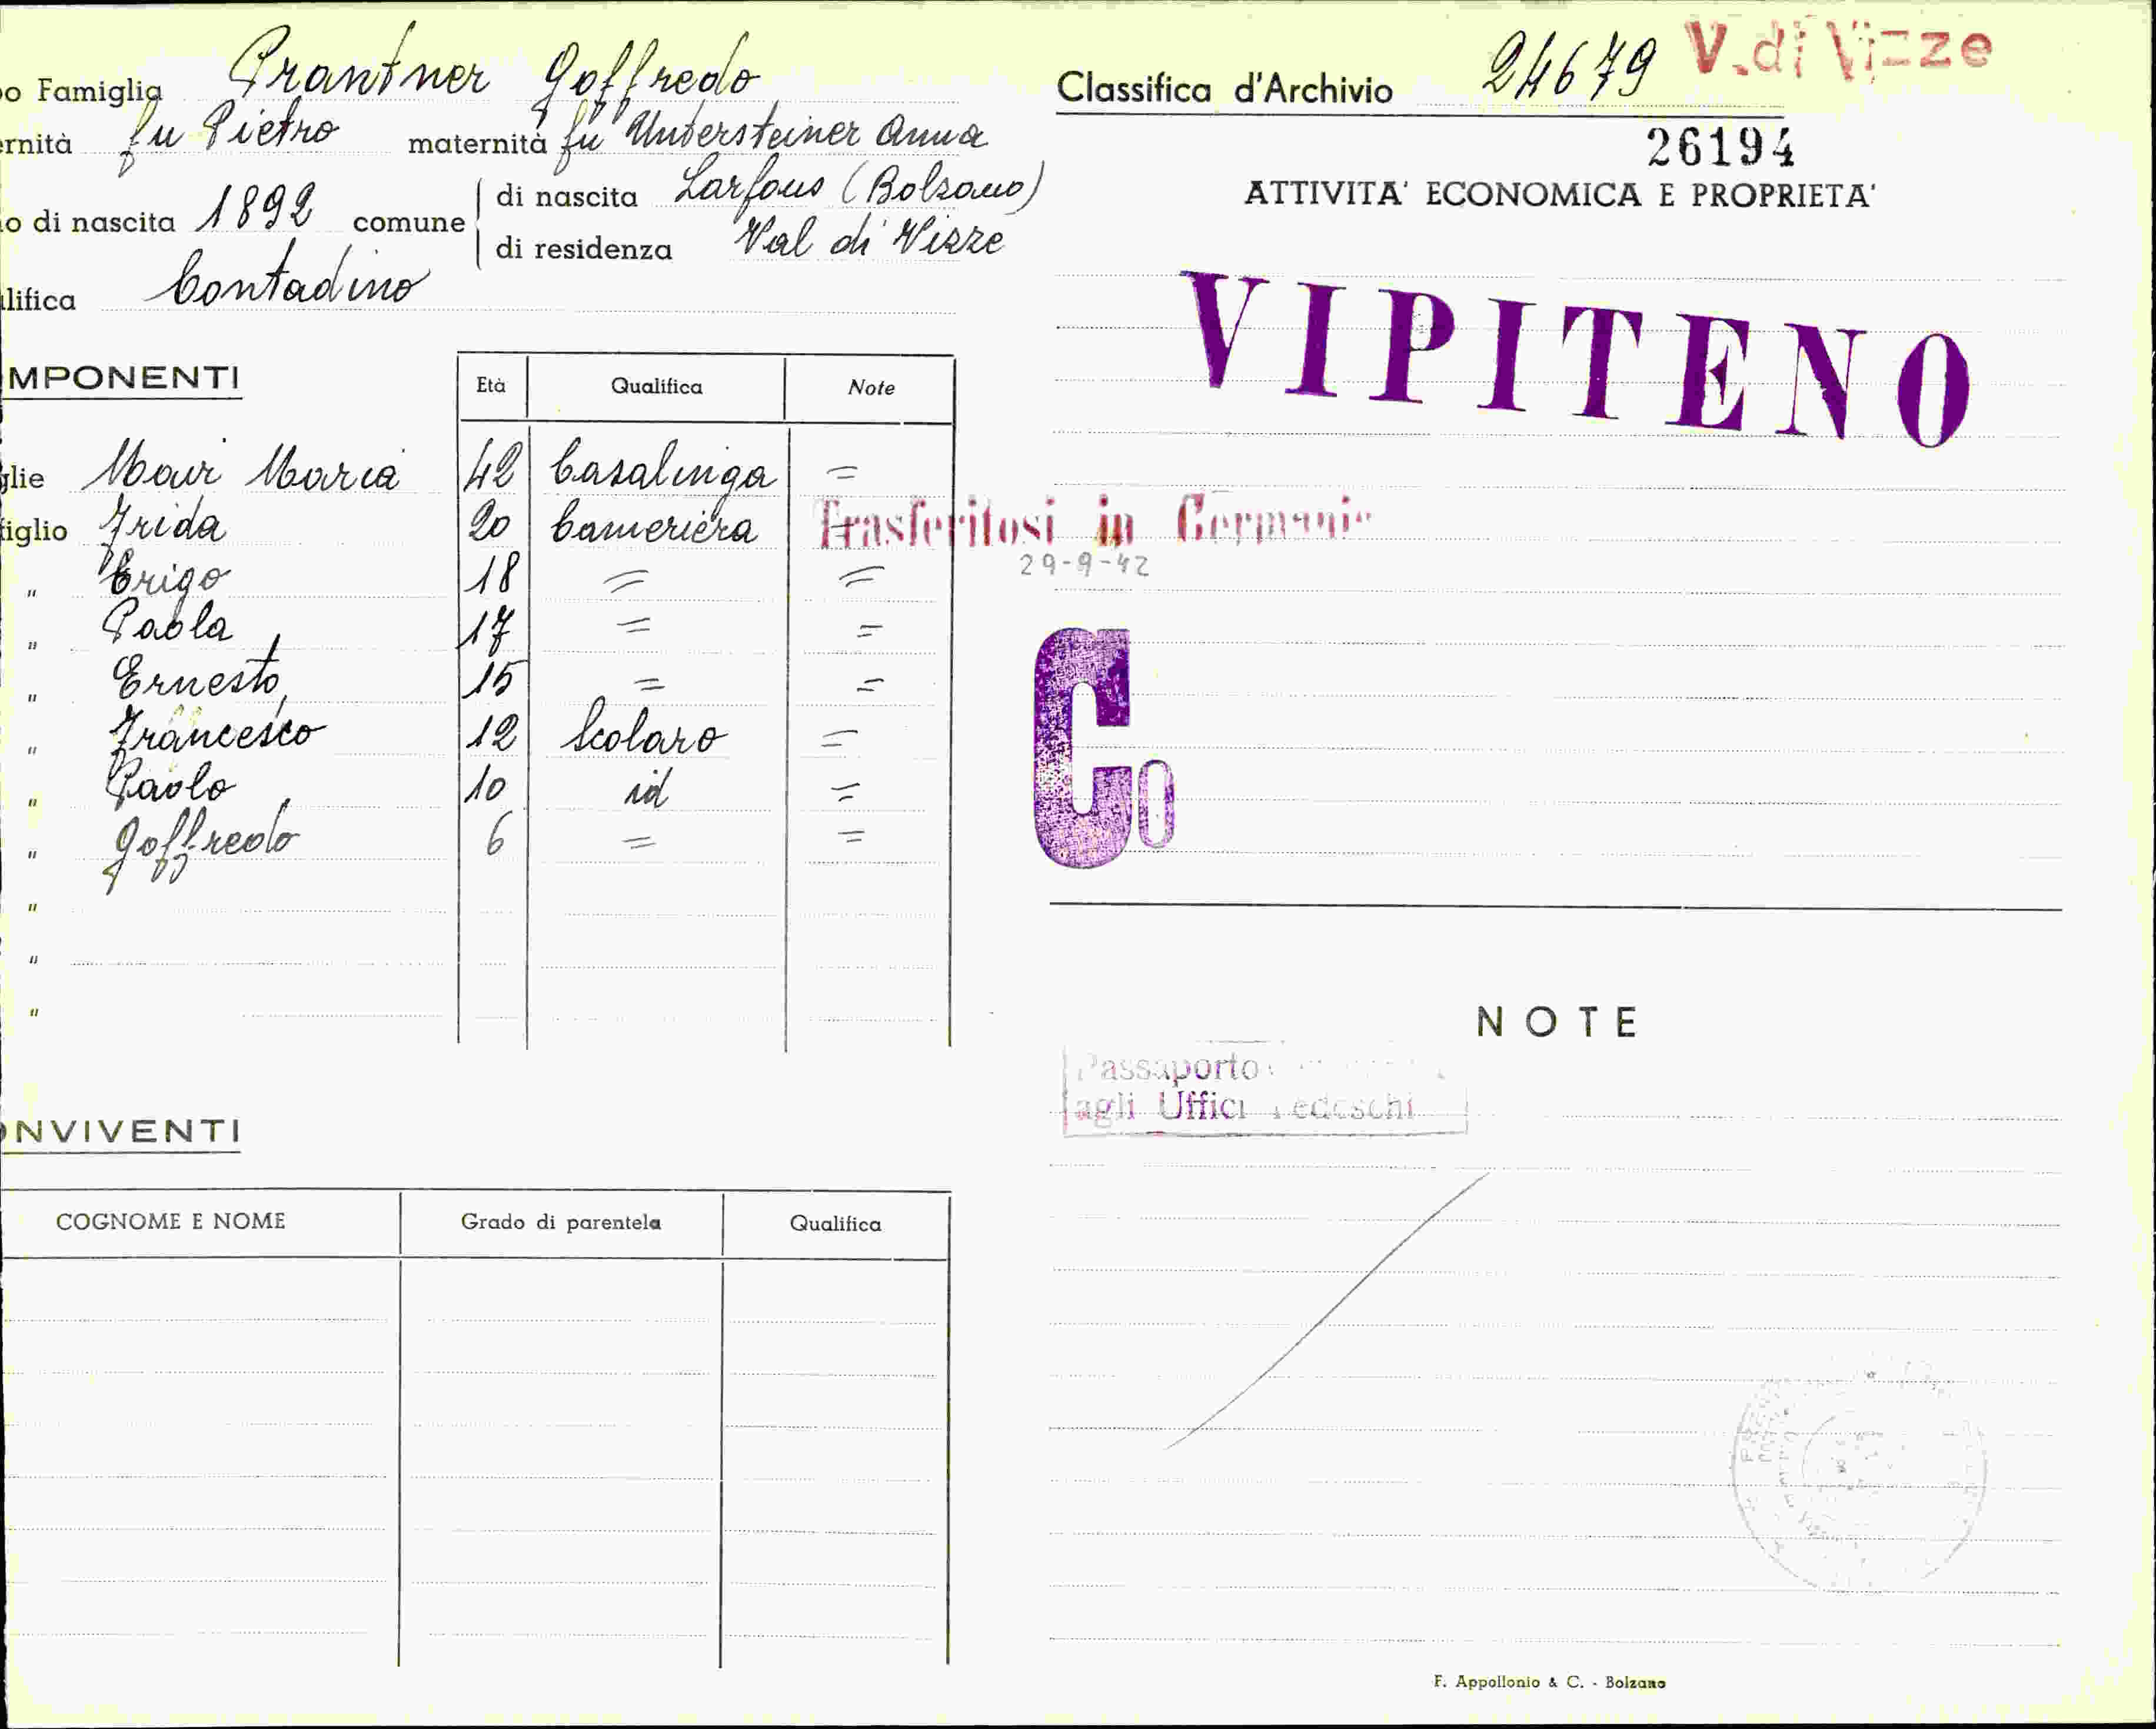 o Famiglia Prantner Goffredo
rnità fu Pietro maternità fu Untersteiner Anna
o di nascita 1892 comune di nascita Larfons (Bolzano)
di residenza Val di Vizze
lifica Contadino
MPONENTI
Età Qualifica Note
glie Mair Maria 42 Casalinga =
figlio Frida 20 Cameriera
" Erigo 18 = =
" Paola 17 = =
" Ernesto 15 = =
" Francesco 12 Scolaro =
" Paolo 10 id =
" Goffredo 6 = =
"
"
"
NVIVENTI
COGNOME E NOME Grado di parentela Qualifica
Classifica d'Archivio 24679 V. di Vizze
26194
ATTIVITA' ECONOMICA E PROPRIETA'
VIPITENO
Trasferitosi in Germania
29-9-42
Co
NOTE
Passaporto
agli Uffici Tedeschi
F. Appollonio & C. - Bolzano